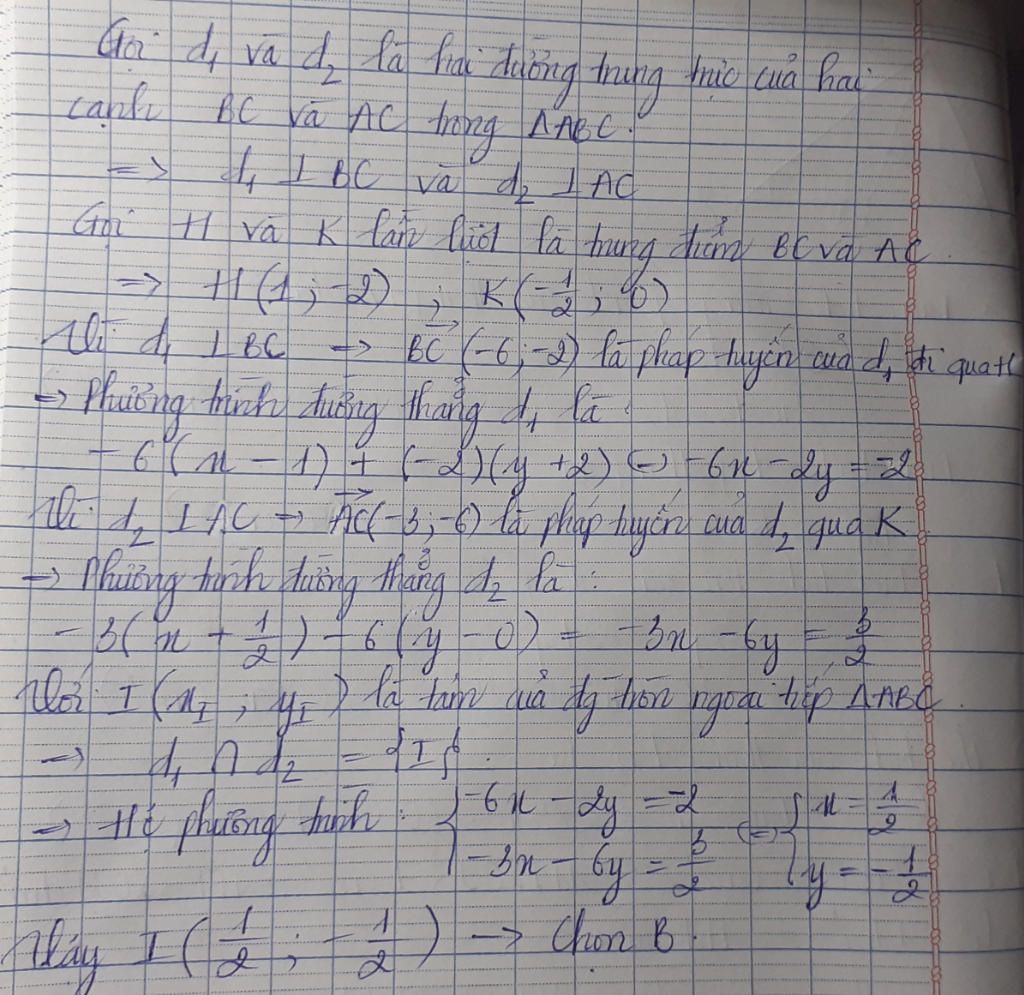 Gọi d₁ và d₂ là hai đường trung trực của hai
cạnh BC và AC trong ΔABC.
=> d₁ ⊥ BC và d₂ ⊥ AC
Gọi H và K lần lượt là trung điểm BC và AC.
=> H(1 ; -2) ; K(-1/2 ; 0)
Vì d₁ ⊥ BC → \overrightarrow{BC} (-6 ; -2) là pháp tuyến của d₁ đi qua H
→ Phương trình đường thẳng d₁ là :
-6(x - 1) + (-2)(y + 2) (=) -6x - 2y = -2
Vì d₂ ⊥ AC → \overrightarrow{AC}(-3 ; -6) là pháp tuyến của d₂ qua K
→ Phương trình đường thẳng d₂ là :
-3(x + 1/2) - 6(y - 0) = -3x - 6y = 3/2
Với I(x_I ; y_I) là tâm của đg tròn ngoại tiếp ΔABC.
→ d₁ ∩ d₂ = {I}.
→ Hệ phương trình : { -6x - 2y = -2 ; -3x - 6y = 3/2 (=) { x = 1/2 ; y = -1/2
Vậy I(1/2 ; -1/2) → Chọn B.